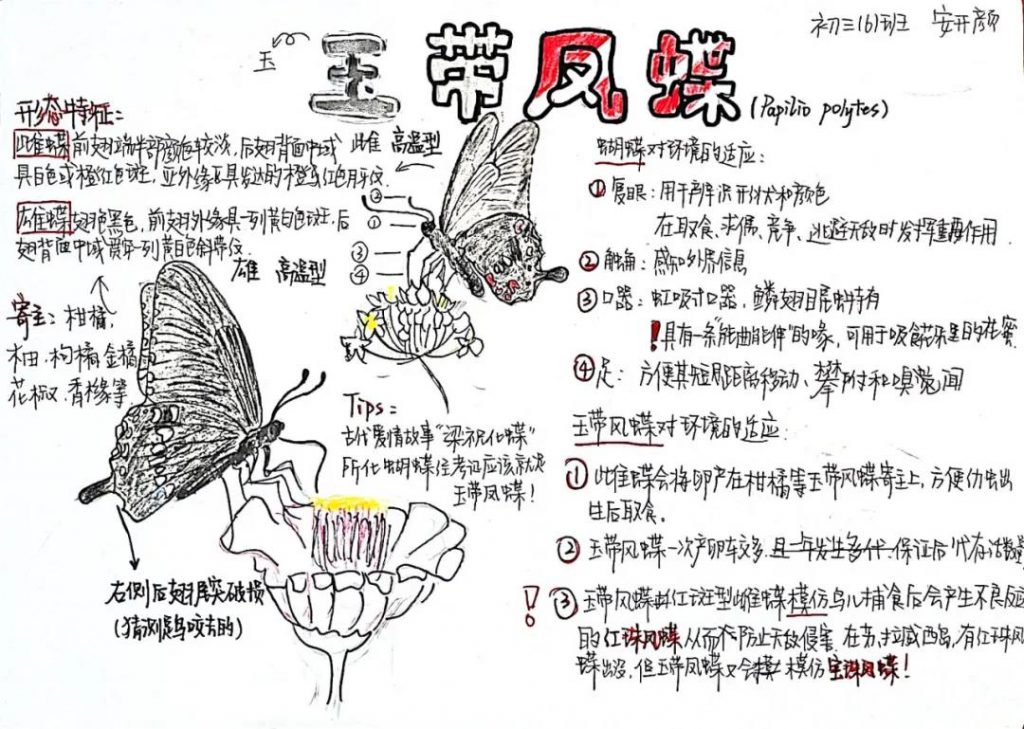 初三(6)班 安开颜
玉
玉带凤蝶
(Papilio polytes)
形态特征:
雌蝶 前翅端半部颜色较淡,后翅背面中域
具白色或橙红色斑,亚外缘区具发达的橙红色月纹.
雄蝶 翅色黑色,前翅外缘具一列黄白色斑,后
翅背面中域贯穿一列黄白色斜带纹.
雌 高温型
①
②
③
④
雄 高温型
寄主:柑橘,
柚.枸橘.金橘,
花椒.香橼等
Tips:
古代爱情故事“梁祝化蝶”
所化蝴蝶经考证应该就是
玉带凤蝶!
右侧后翅尾突破损
(猜测是鸟咬去的)
蝴蝶对环境的适应:
①复眼:用于辨识形状和颜色
在取食、求偶、竞争、逃避天敌时发挥重要作用.
②触角:感知外界信息
③口器:虹吸式口器,鳞翅目昆虫特有
!具有一条“能曲能伸”的喙,可用于吸食花朵里的花蜜.
④足:方便其短距离移动、攀附和嗅觉闻
玉带凤蝶对环境的适应:
①此雌蝶会将卵产在柑橘等玉带凤蝶寄主上,方便幼虫出
生后取食.
②玉带凤蝶一次产卵较多,且一年发生多代.保证后代存活数量
! ③玉带凤蝶红斑型雌蝶模仿鸟儿捕食后会产生不良反应
的红珠凤蝶从而防止天敌侵害.在苏拉威西岛,有红珠凤
蝶出没,但玉带凤蝶又会模仿宝珠凤蝶!